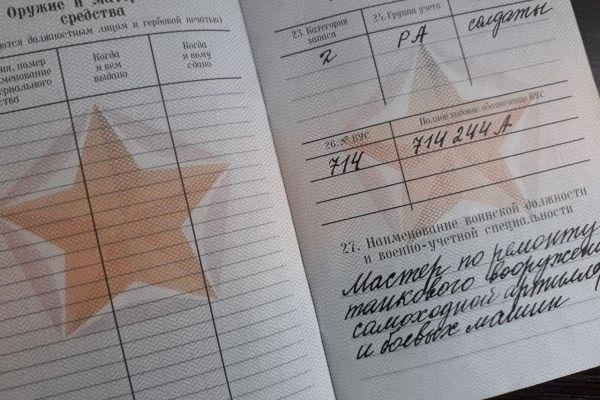 Оружие и
средства
должностным лицом и гербовой печатью)
номер
Когда
и кем
выдано
Когда
и кому
сдано
23. Категория
запаса
24. Группа учета
солдаты
2
РА
26. № ВУС
Полное кодовое обозначение ВУС
714
714 244 А
27. Наименование воинской должности
и военно-учетной специальности
Мастер по ремонту
танкового
самоходной
и боевых машин